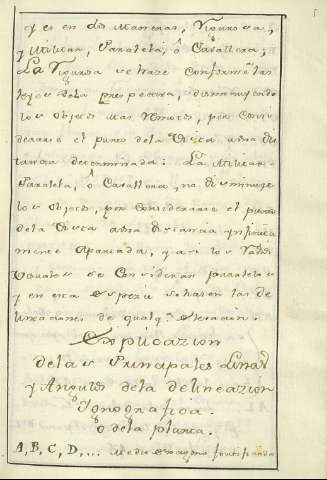 y es en dos maneras, Vigurosa,
y Militar, Paralela, ô Cavallera;
La Vigurosa se haze conforme las
leyes dela prespectiva, disminuyendo
los objetos mas remotos, por consi
derarse el punto dela Vista auna dis
tancia determinada: La Militar
Paralela, ô Cavallera, no disminuye
los objetos, por considerarse el punto
dela Vista auna distancia ynfinita
mente Apartada, y asi los Radios
Visuales se Consideran paralelos
y en esta espezie se hazen las de
lineaciones de qualq.ª
Explicazion
delas Principales Lineas
y Angulos dela delineazion
Ygnografica.
ô dela planta.
A, B, C, D, ... Medio exagono fortificado